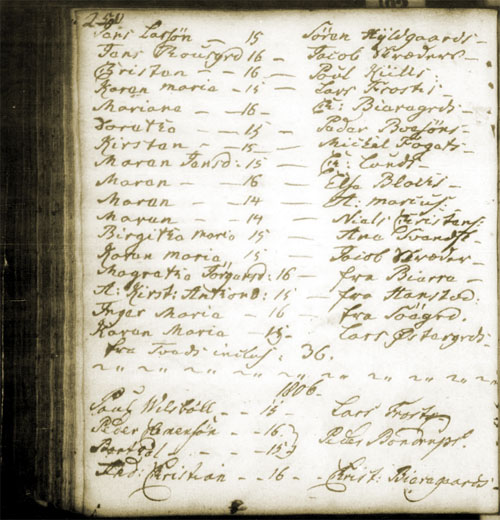 Lars Larsön — 15 Sören Hyldgaards —
Jens Lousgrd 16 — Jacob Skræders —
Christan — 16 — Poul Kiells:
Karen maria — 15 — Lars Frosts
Mariane — 16 — Chr: Biaragrds —
Dorathe — 15 — Peder Boesöns —
Kirsten — 15 — Mickel Fogats —
Maren Jensd: 15 — Chr: Lunds —
Maren — 16 — Else Blochs —
Maren — 14 — A: marius —
Maren — 14 — Niels Christens:
Birgithe maria 15 — Ane Svends —
Karen maria 15 — Jacob Skræder —
Magrethe Jörgensd: 16 — fra Biarre —
A: Kirst: Antond: 15 — fra Hansted:
Inger Maria — 16 — fra Söegrd.
Karen Maria — 15 — Lars Östergrds
fra inclus: 36.
1806
Poul Wilsböll — 15 — Lars Frost
Peder — 16 Peder Bondrups.
— 15
And: Christian — 16 — Christ: Biaregaards